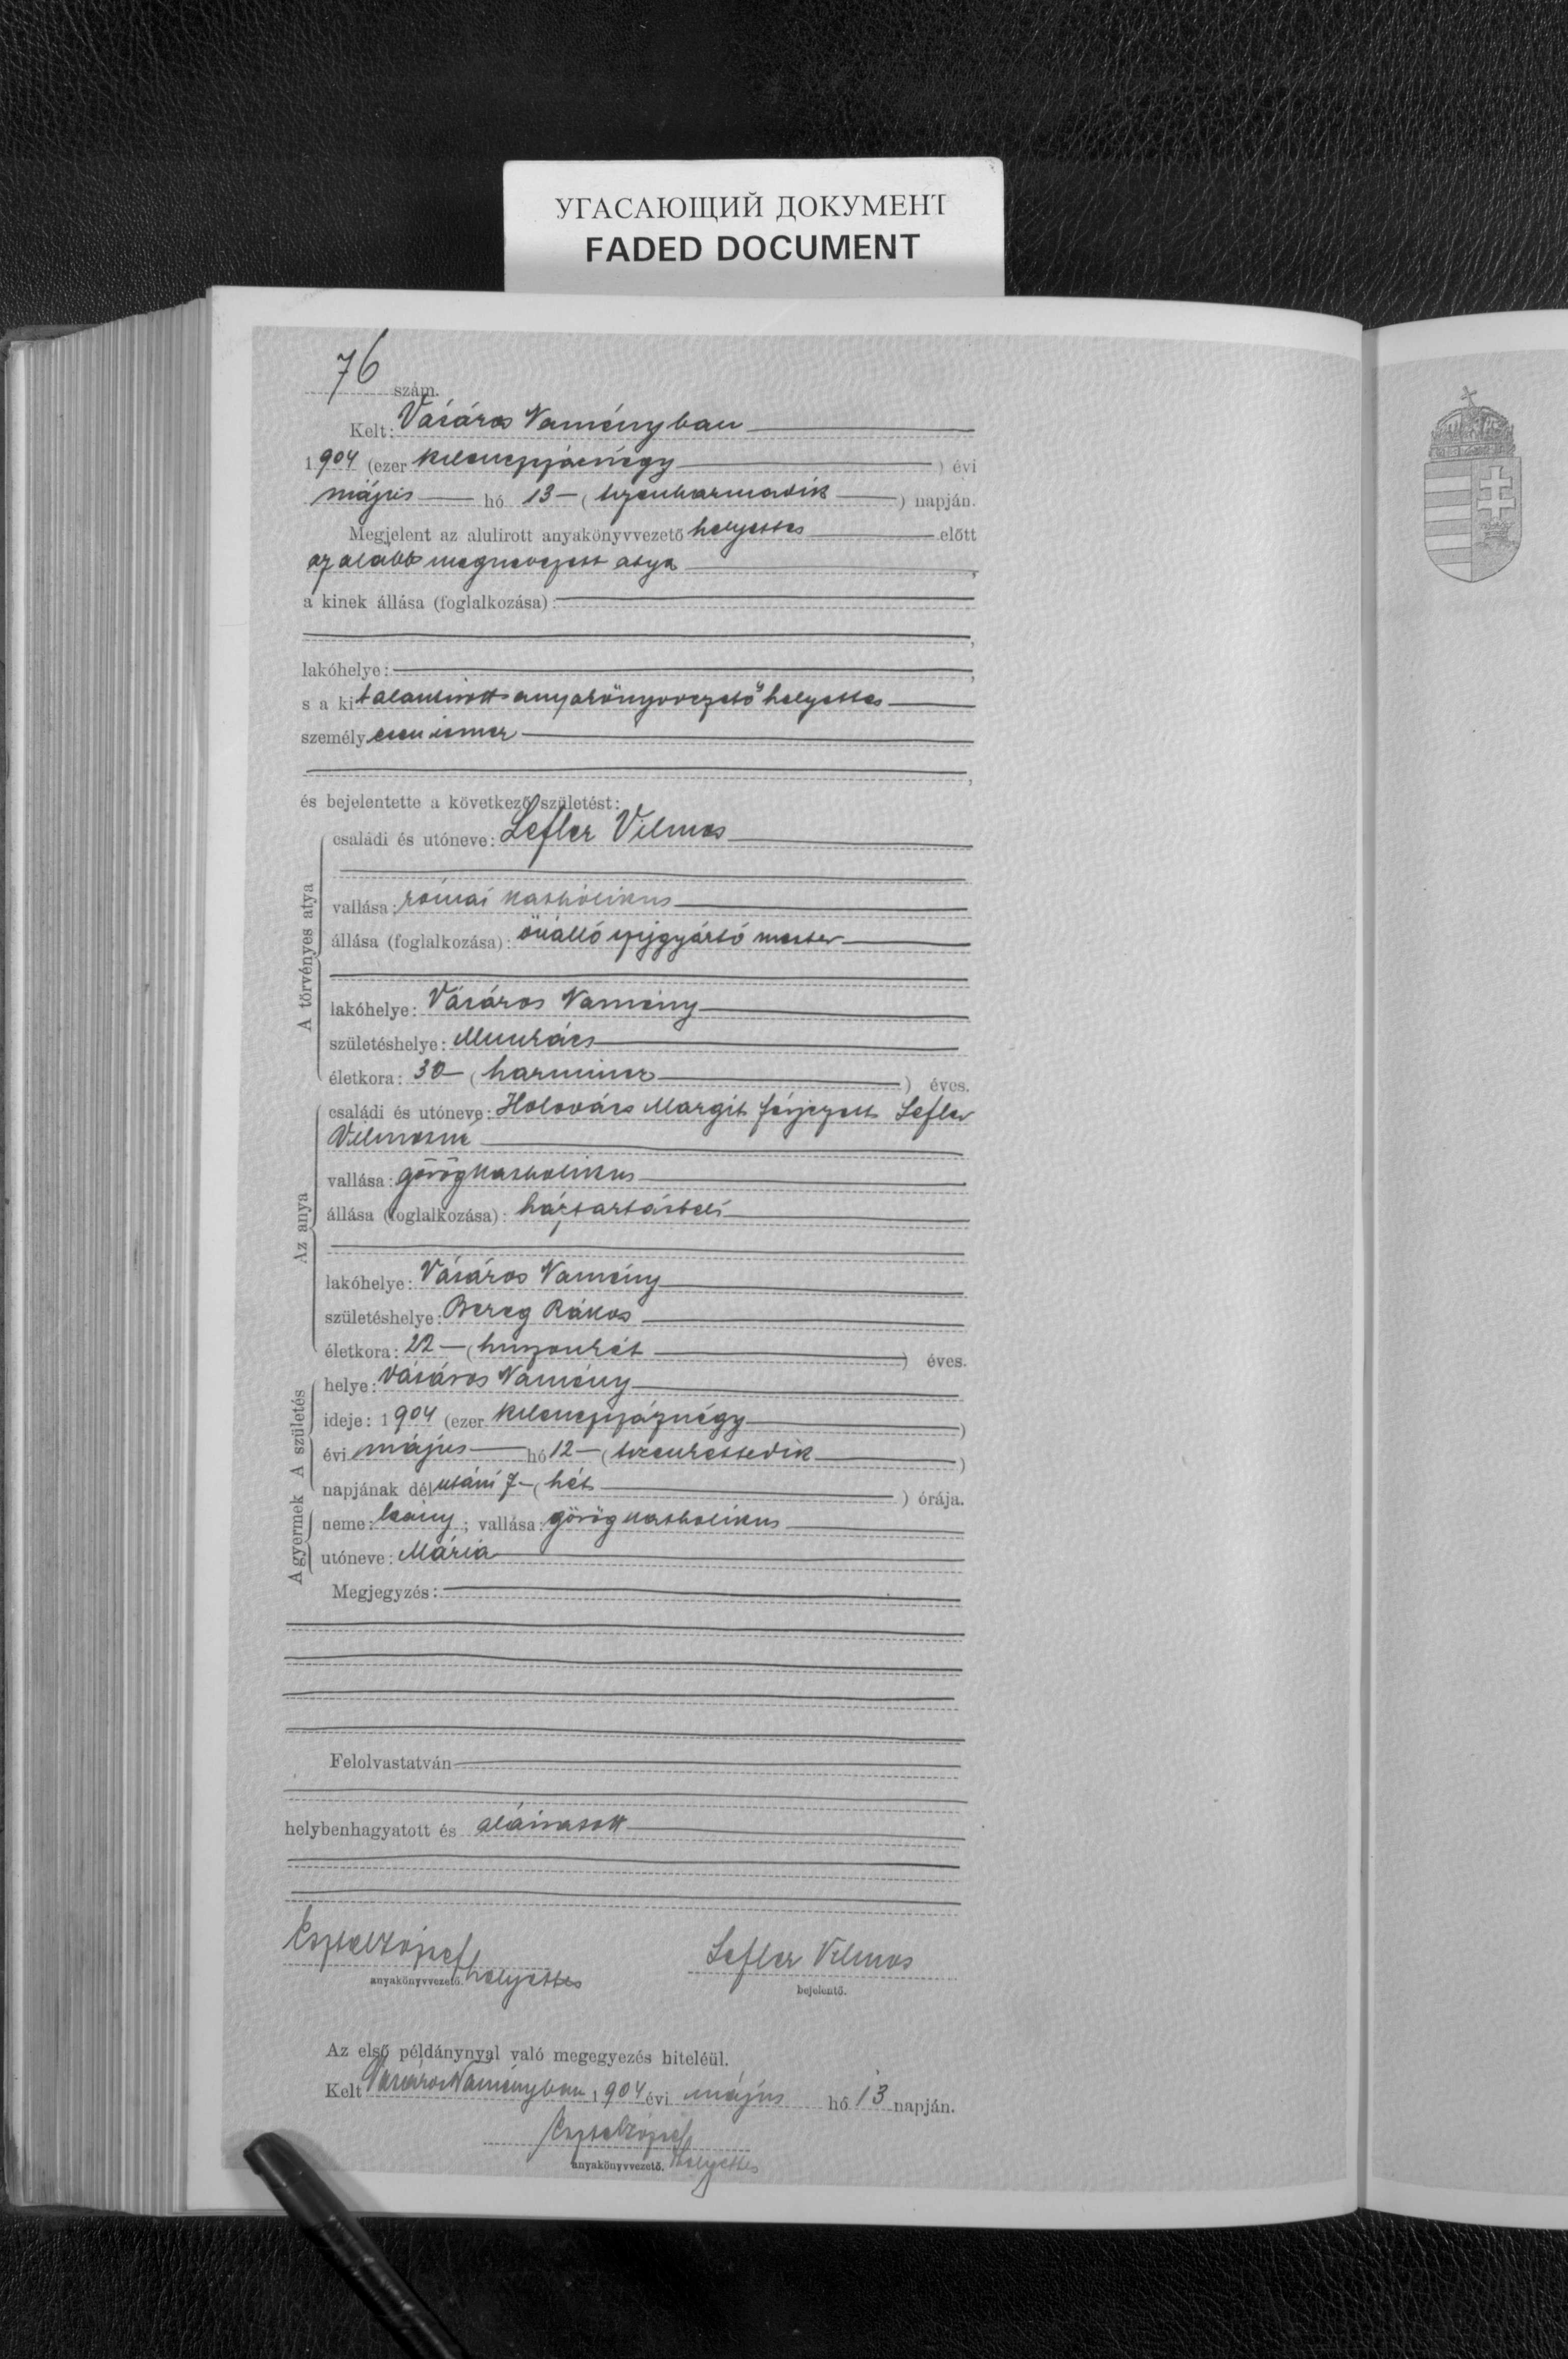 УГАСАЮЩИЙ ДОКУМЕНТ
FADED DOCUMENT
76 szám.
Kelt: Vásáros Naményban
1904 (ezer kilenczszáznégy) évi
május hó 13 (tizenharmadik) napján.
Megjelent az alulirott anyakönyvvezető helyettes előtt
az alább megnevezett atya,
a kinek állása (foglalkozása):
lakóhelye:
s a kit alantirott anyakönyvvezető helyettes
személyesen ismer
és bejelentette a következő születést:
A törvényes atya
családi és utóneve: Lefler Vilmos
vallása: római katholikus
állása (foglalkozása): önálló szijgyártó mester
lakóhelye: Vásáros Namény
születéshelye: Munkács
életkora: 30 (harmincz) éves.
Az anya
családi és utóneve: Holovács Margit férjezett Lefler
Vilmosné
vallása: görögkatholikus
állása (foglalkozása): háztartásbeli
lakóhelye: Vásáros Namény
születéshelye: Bereg Rákos
életkora: 22 (huszonkét) éves.
A születés
helye: Vásáros Namény
ideje: 1904 (ezer kilenczszáznégy)
évi május hó 12 (tizenkettedik)
napjának délutáni 7 (hét) órája.
A gyermek
neme: leány; vallása: görögkatholikus
utóneve: Mária
Megjegyzés:
Felolvastatván
helybenhagyatott és aláiratott
József
anyakönyvvezető. helyettes
Lefler Vilmos
bejelentő.
Az első példánynyal való megegyezés hiteléül.
Kelt Vásáros Naményban 1904 évi május hó 13 napján.
József
anyakönyvvezető. helyettes